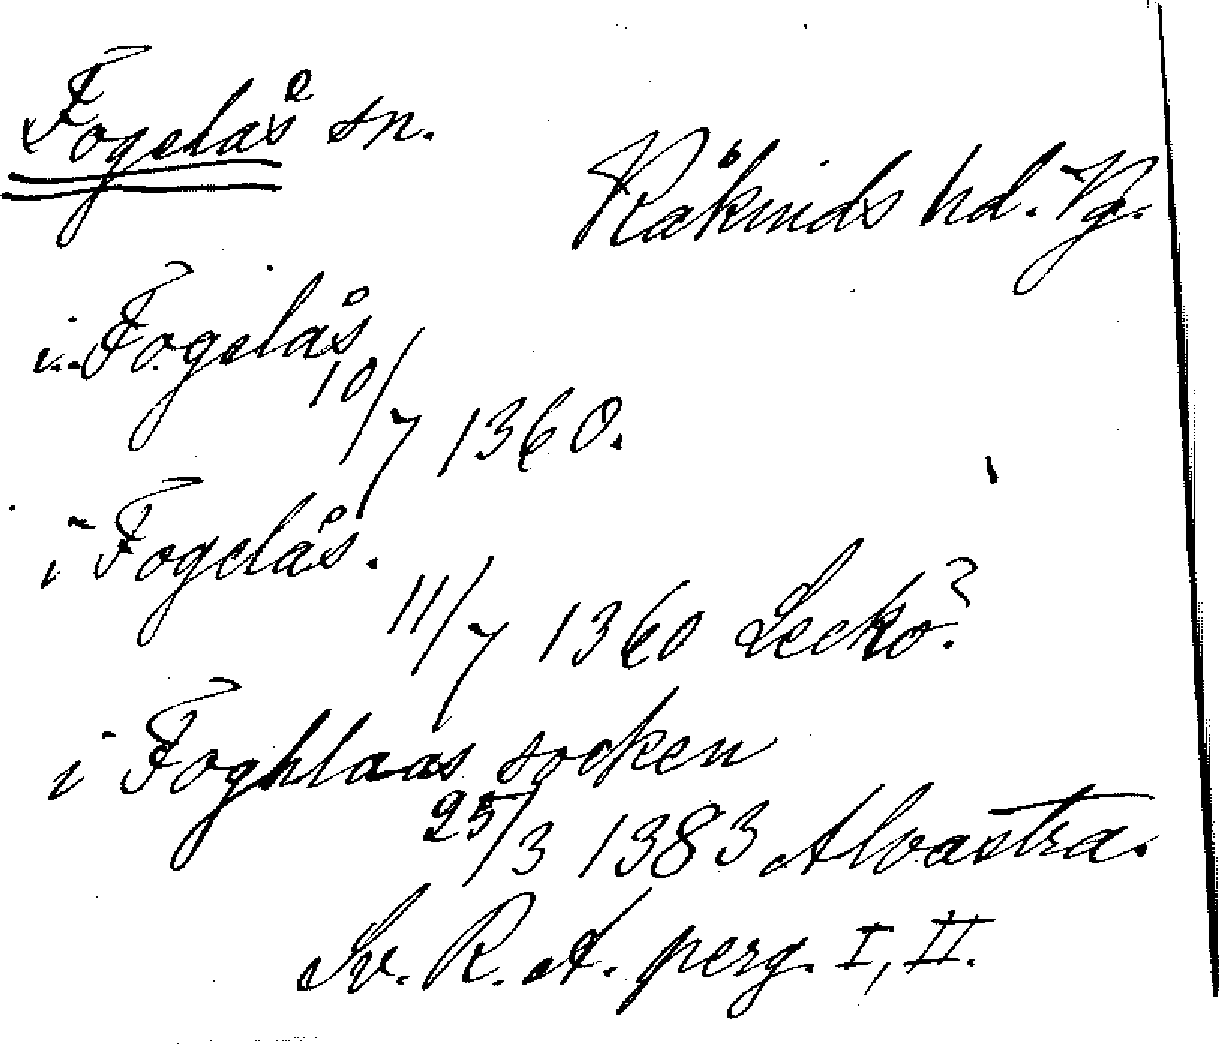 Fogelås sn.
Råkinds hd. Vg.
i Fogelås
10/7 1360.
i Fogelås.
11/7 1360 Lecko?
i Foghlaas socken
25/3 1383 Alvastra.
Sv. R. A. perg. I, II.